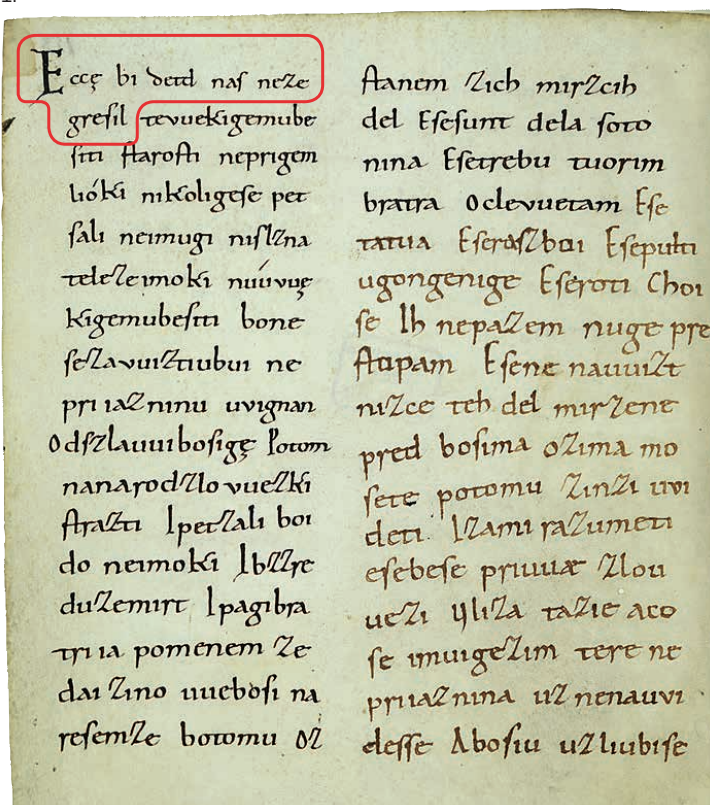 Eccę bi detd naſ neze
greſil tevuekigemube
ſiti ſtaroſti neprigem
lióki nikoligeſe pet
ſali neimugi niſlzna
telezeimoki núuvuę
kigemubeſiti bone
ſezavuiztiubui ne
priiazninu uvignan
Odſzlauuiboſigę Potom
nanarodzlovuezki
ſtrazti Ipetzali boi
do neimoki Ibzzre
duzemirt Ipagibra
triia pomenem ze
dai zino uueboſi na
reſemze botomu oz
ſtanem zich mirzcih
del Eſeſunt dela ſoto
nina Eſetrebu tuorim
bratra Oclevuetam Eſe
tatua Eſeraſzboi Eſepulti
ugongenige Eſeroti Choi
ſe Ih nepazem nuge pre
ſtopam Eſene nauuizt
nizce teh del mirzene
pred boſima ozima mo
ſete potomu zinzi uvi
deti. Izami razumeti
eſebeſe priuuæ zlou
uezi Yliza tazie aco
ſe imuigezim tere ne
priiaznina uz nenauvi
deſſe Aboſiu uzliubiſe